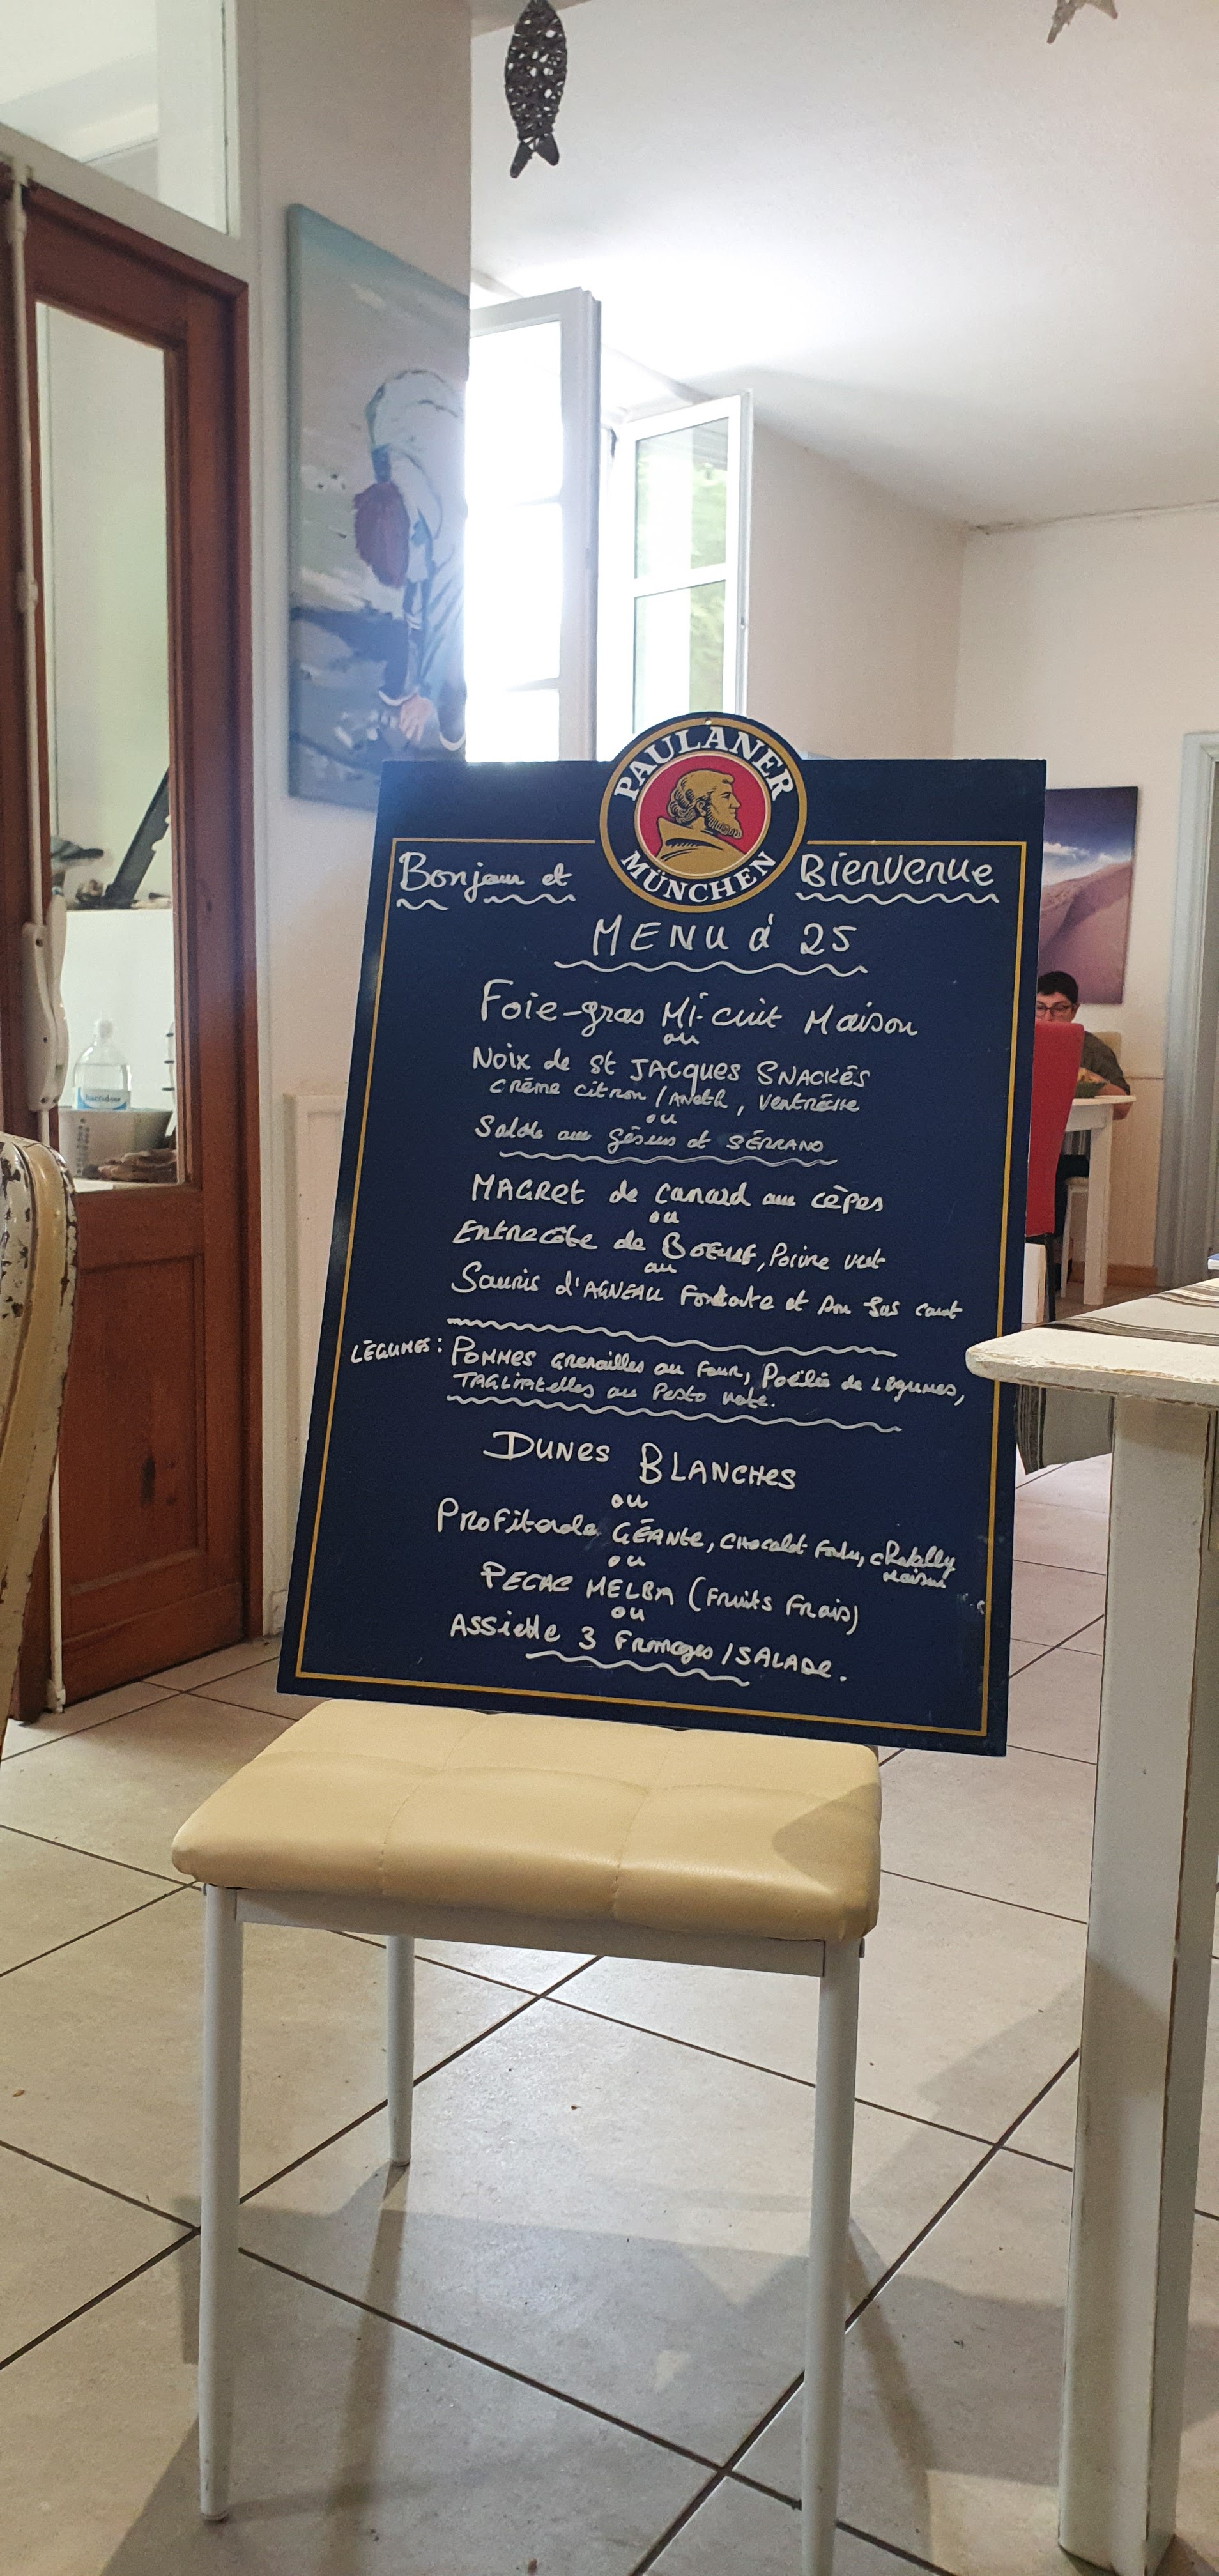 PAULANER
MÜNCHEN
Bonjour et Bienvenue
MENU à 25
Foie-gras Mi-cuit Maison
ou
Noix de St JACQUES SNACKÉS
crème citron / ANETH, ventrèche
ou
Salade aux gésiers et SÉRRANO
MAGRET de canard aux cèpes
ou
Entrecôte de BOEUF, Poivre vert
ou
Souris d'AGNEAU Fondante et son Jus court
LÉGUMES: POMMES grenailles au four, Poêlée de légumes,
TAGLIATELLES au Pesto
DUNES BLANCHES
ou
Profiterole GÉANTE, chocolat fondu, chantilly
maison
ou
PECHE MELBA (Fruits Frais)
ou
ASSiette 3 Fromages / SALADE.
bactidose